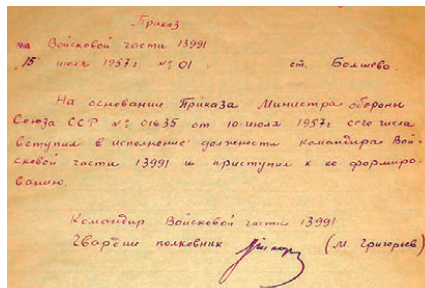 Приказ
на Войсковой части 13991
"15" июля 1957г № 01 ст. Болшево.
На основании Приказа Министра обороны
Союза ССР № 01635 от 10 июля 1957г сего числа
вступил в исполнение должности командира Вой-
сковой части 13991 и приступил к ее формиро-
ванию.
Командир Войсковой части 13991
Гвардии полковник (М. Григорьев)